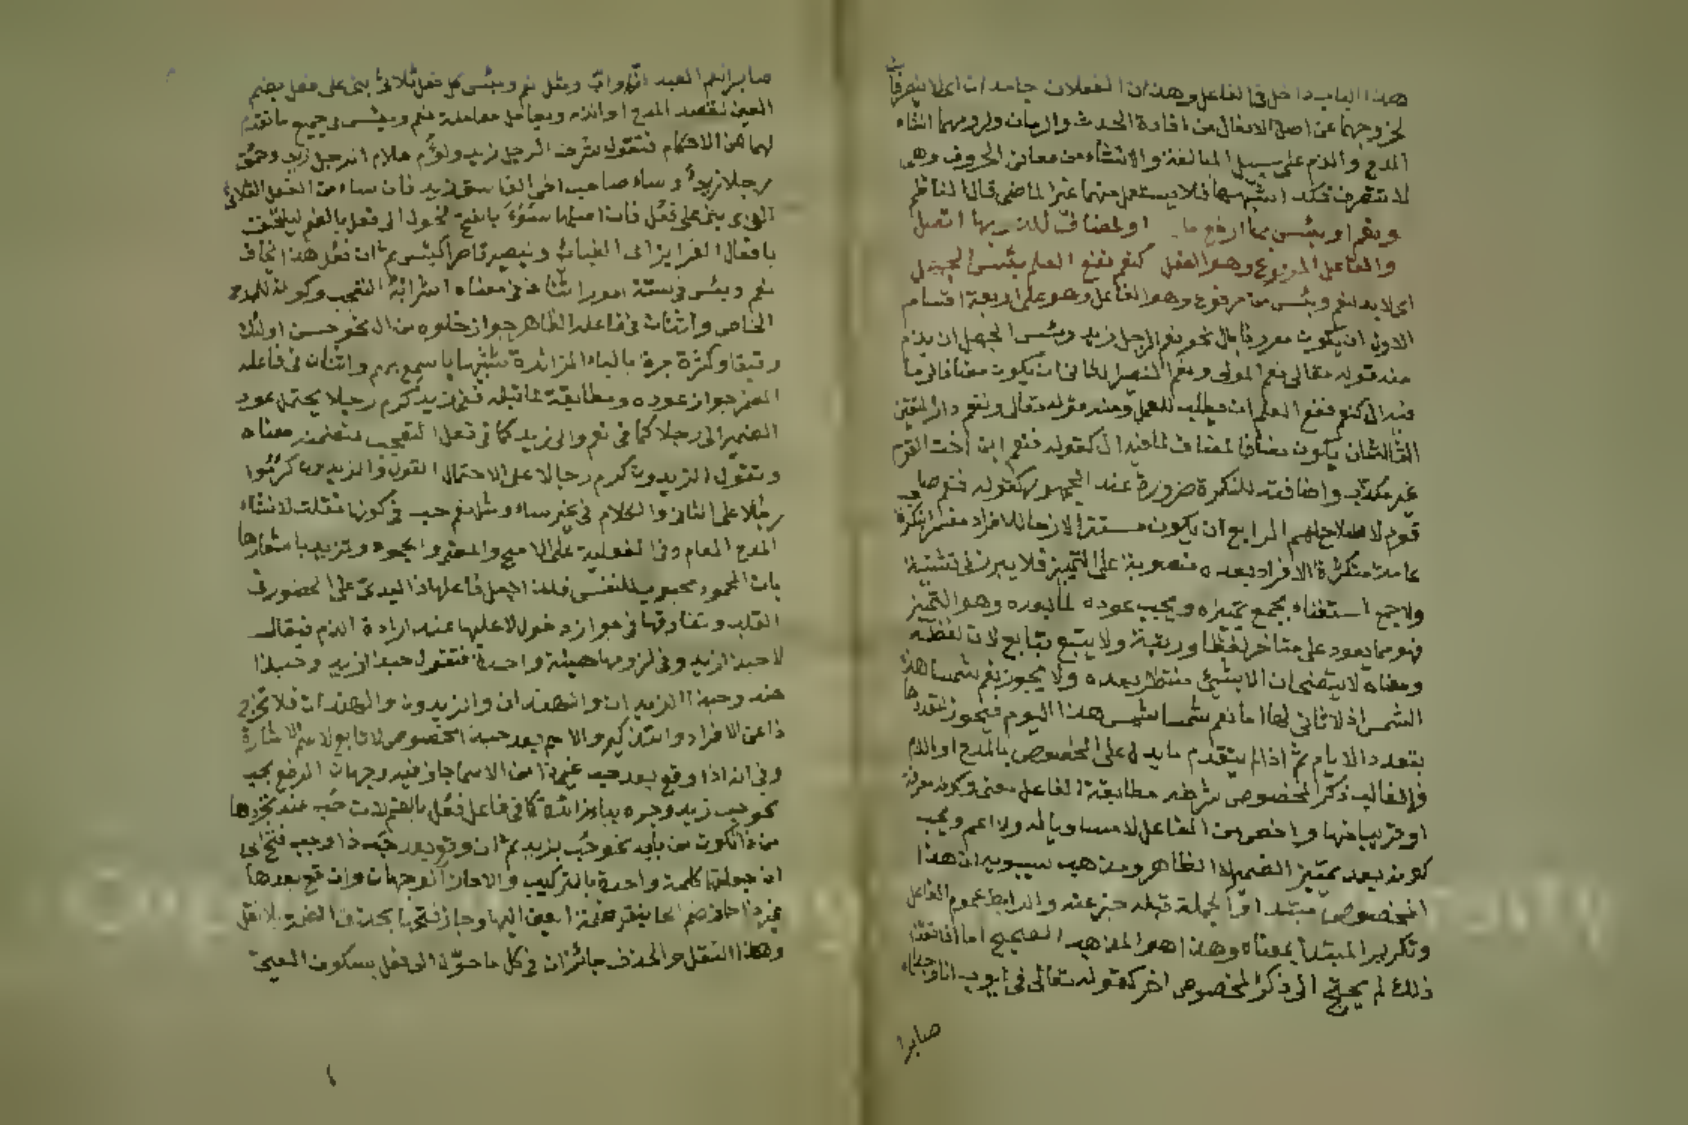 هذا الباب داخل في الفاعل وهذان الفعلان جامدان اى لا يتصرفان
لخروجهما عن اصل الافعال من افادة الحدث والزمان ولزومهما انشاء
المدح والذم على سبيل المبالغة والانشاء من معانى الحروف وهى
لا تتصرف فكذا ما اشبهها فلا يستعمل منهما غير الماضى قال الناظم
ونعم او بئس بها ارفع ما او لمضاف للذى بها اتصل
والفاعل المرفوع وهو الفعل كنعم نفع العلم بئس الجهل
اى لا بد لنعم وبئس من مرفوع وهو الفاعل وهو على اربعة اقسام
الاول ان يكون معرفا بال نحو نعم الرجل زيد وبئس الجهل ان يذم
منه قوله تعالى نعم المولى ونعم النصير الثانى ان يكون مضافا لما
فيه ال كنعم نفع العلم ان يطلب للعمل ومنه قوله تعالى ونعم دار المتقين
الثالث ان يكون مضافا لمضاف لما فيه ال كقوله فنعم ابن اخت القوم
غير مكذب واضافته للنكرة ضرورة عند الجمهور كقوله فنعم صاحب
قوم لا سلاح لهم الرابع ان يكون مستترا لازما للافراد مفسرا بنكرة
عامة متكثرة الافراد بعده منصوبة على التمييز فلا يبرز فى تثنية
ولا جمع استغناء بجمع تمييزه ويجب عوده لما بعده وهو التمييز
فهو مما يعود على متاخر لفظا ورتبة ولا يتبع بتابع لان لفظه
ومعناه لا يتضحان الا بشىء منتظر بعده ولا يجوز نعم شمسا هذه
الشمس اذ لا ثانى لها اما نعم شمسا شمس هذا اليوم فيجوز لتعددها
بتعدد الايام ثم اذا لم يتقدم ما يدل على المخصوص بالمدح او الذم
فالغالب ذكر المخصوص بشرطه مطابقة الفاعل معنى وكونه معرفة
او قريبا منها واخص من الفاعل لا مساويا له ولا اعم ويجب
كونه بعد مميز الضمير لا الظاهر ومذهب سيبويه ان هذا
المخصوص مبتدا والجملة قبله خبر عنه والرابط عموم الفاعل
وتكرير المبتدا بمعناه وهذا هو المذهب الصحيح اما اذا تقدم
ذلك لم يحتج الى ذكر المخصوص اخر كقوله تعالى فى ايوب انا وجدناه
صابرا
صابرا نعم العبد انه اواب ومثل نعم وبئس كل فعل ثلاثى بنى على فعل بضم
العين لقصد المدح او الذم ويعامل معاملة نعم وبئس فى جميع ما تقدم
لهما من الاحكام فتقول شرف الرجل زيد ولؤم غلام الرجل زيد وحمق
رجلا زيد وساء صاحب اخى الفاسق زيد فان ساء من الفعل الثلاثى
الذى بنى على فعل فان اصلها سوء بالفتح فحول الى فعل بالضم ليلتحق
بافعال الغرايز اى الطبائع ويصير قاصرا كبئس ثم ان فعل هذا يخالف
نعم وبئس فى ستة امور اثنان فى معناه اشرابه التعجب وكونه للمدح
الخاص واثنان فى فاعله الظاهر جواز خلوه من ال نحو حسن اولئك
رفيقا وكثرة جره بالباء الزائدة تشبيها باسمع بهم واثنان فى فاعله
المضمر جواز عوده ومطابقته لما قبله فنحو زيد كرم رجلا يحتمل عود
الضمير الى رجلا كما فى نعم والى زيد كما فى فعل التعجب معناه
وتقول الزيدون كرم رجالا على الاحتمال الاول والزيدون كرموا
رجالا على الثانى والكلام فى غير ساء ومثل نعم حب فى كونها نقلت لانشاء
المدح العام وفى الفعلية على الاصح والمضى والجمود وتزيد باشعارها
بان المحمود محبوب للنفس فلذا جعل فاعلها ذا ليدل على الحضور فى
القلب وتفارقها فى جواز دخول لا عليها عند ارادة الذم فيقال
لا حبذا زيد وفى لزومها هيئة واحدة فتقول حبذا زيد وحبذا
هند وحبذا الزيدان والهندان والزيدون والهندات فلا تخرج
ذا عن الافراد والتذكير والاسم بعد حبذا المخصوص لا تابع لاسم الاشارة
وفى انه اذا وقع بعد حب غير ذا من الاسما جاز فيه وجهان الرفع بحب
نحو حب زيد وجره بباء زائدة كما فى فاعل فعل بالضم لان حب عند تجردها
من ذا تكون من بابه نحو حب بزيد ثم ان وقع بعد حب ذا وجب فتح الحا
ان جعلتها كلمة واحدة بالتركيب والا جاز الوجهان وان وقع بعدها
غير ذا جاز ضم الحا بنقل ضمة العين اليها وجاز فتحها بحذف الضمة بلا نقل
وهذا النقل والحذف جائزان فى كل ما حول الى فعل بسكون العين